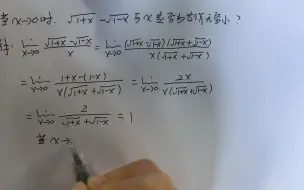 当x→0时, √(1+x) - √(1-x) 与x是否为等价无穷小?
lim x→0 (√(1+x) - √(1-x))/x = lim x→0 (√(1+x) - √(1-x))(√(1+x) + √(1-x))/(x(√(1+x) + √(1-x)))
= lim x→0 (1+x-(1-x))/(x(√(1+x) + √(1-x))) = lim x→0 2x/(x(√(1+x) + √(1-x)))
= lim x→0 2/(√(1+x) + √(1-x)) = 1
当x→